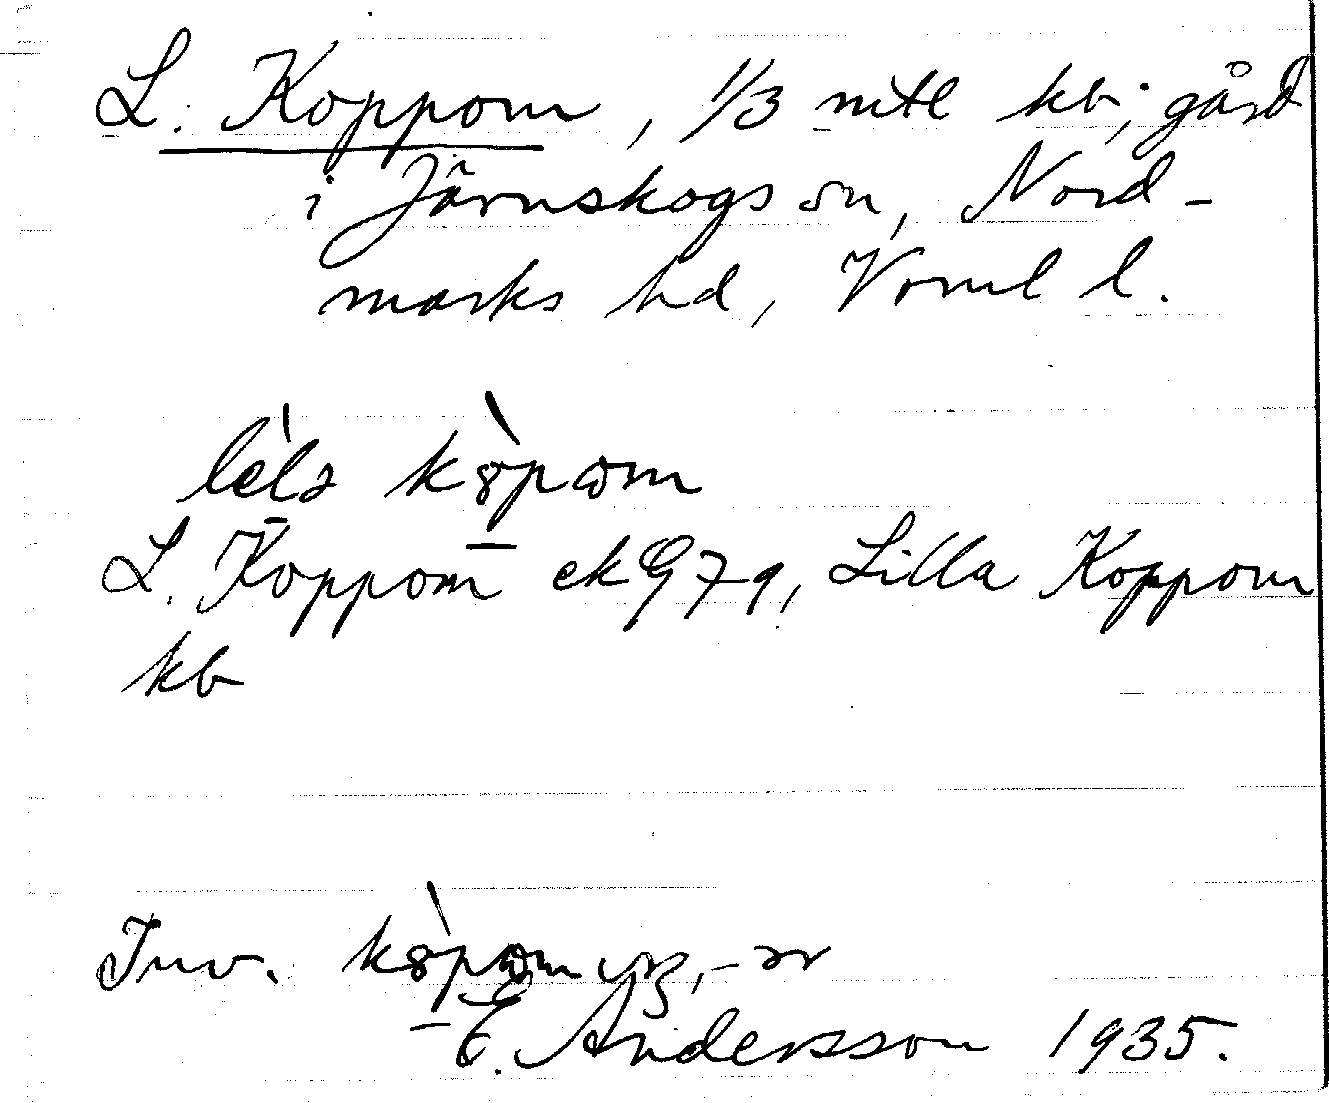 L. Koppom, 1/3 mtl kb; gård
i Järnskogs sn, Nord-
marks hd, Vrml l.
L. Koppom ek G 79, Lilla Koppom
kb
Inv.
E. Andersson 1935.